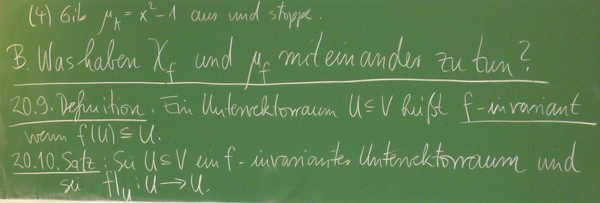 (4) Gib μ_A = x² - 1 aus und stoppe.
B. Was haben χ_f und μ_f miteinander zu tun?
20.9. Definition. Ein Untervektorraum U ⊆ V heißt f-invariant
wenn f(U) ⊆ U.
20.10. Satz: Sei U ⊆ V ein f-invarianter Untervektorraum und
sei f|_U : U → U.